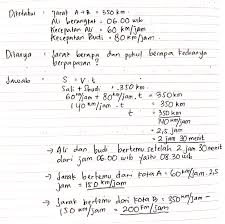 Diketahui : Jarak A→B = 350 km.
Ali berangkat = 06.00 wib
Kecepatan Ali = 60 km/jam
Kecepatan Budi = 80 km/jam
Ditanya : Jarak berapa dan pukul berapa keduanya
berpapasan ?
Jawab : S = V . t
Sali + Sbudi = 350 km.
60 km/jam + 80 km/jam . t = 350 km
140 km/jam . t = 350 km
t = 350 km
140 km/jam
= 2,5 jam
= 2 jam 30 menit
→ Ali dan budi bertemu setelah 2 jam 30 menit
dari jam 06.00 wib yaitu 08.30 wib
→ Jarak bertemu dari kota A = 60 km/jam . 2,5
jam = 150 km/jam
→ Jarak bertemu dari kota B = 350 km/jam -
150 km/jam = 200 km/jam